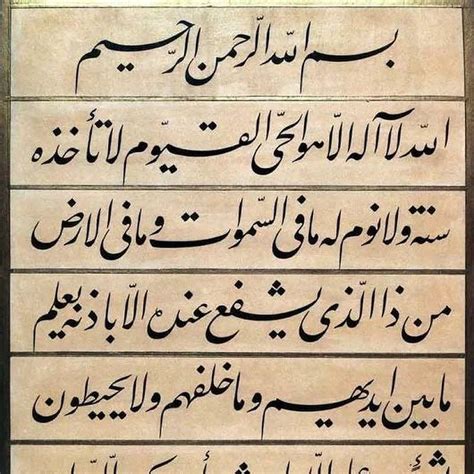 بسم الله الرحمن الرحيم
الله لا آله الا هو الحىّ القيوم لا تأخذه
سنة ولا نوم له ما فى السّموات وما فى الارض
من ذا الّذى يشفع عنده الّا باذنه يعلم
ما بين ايديهم وما خلفهم ولا يحيطون